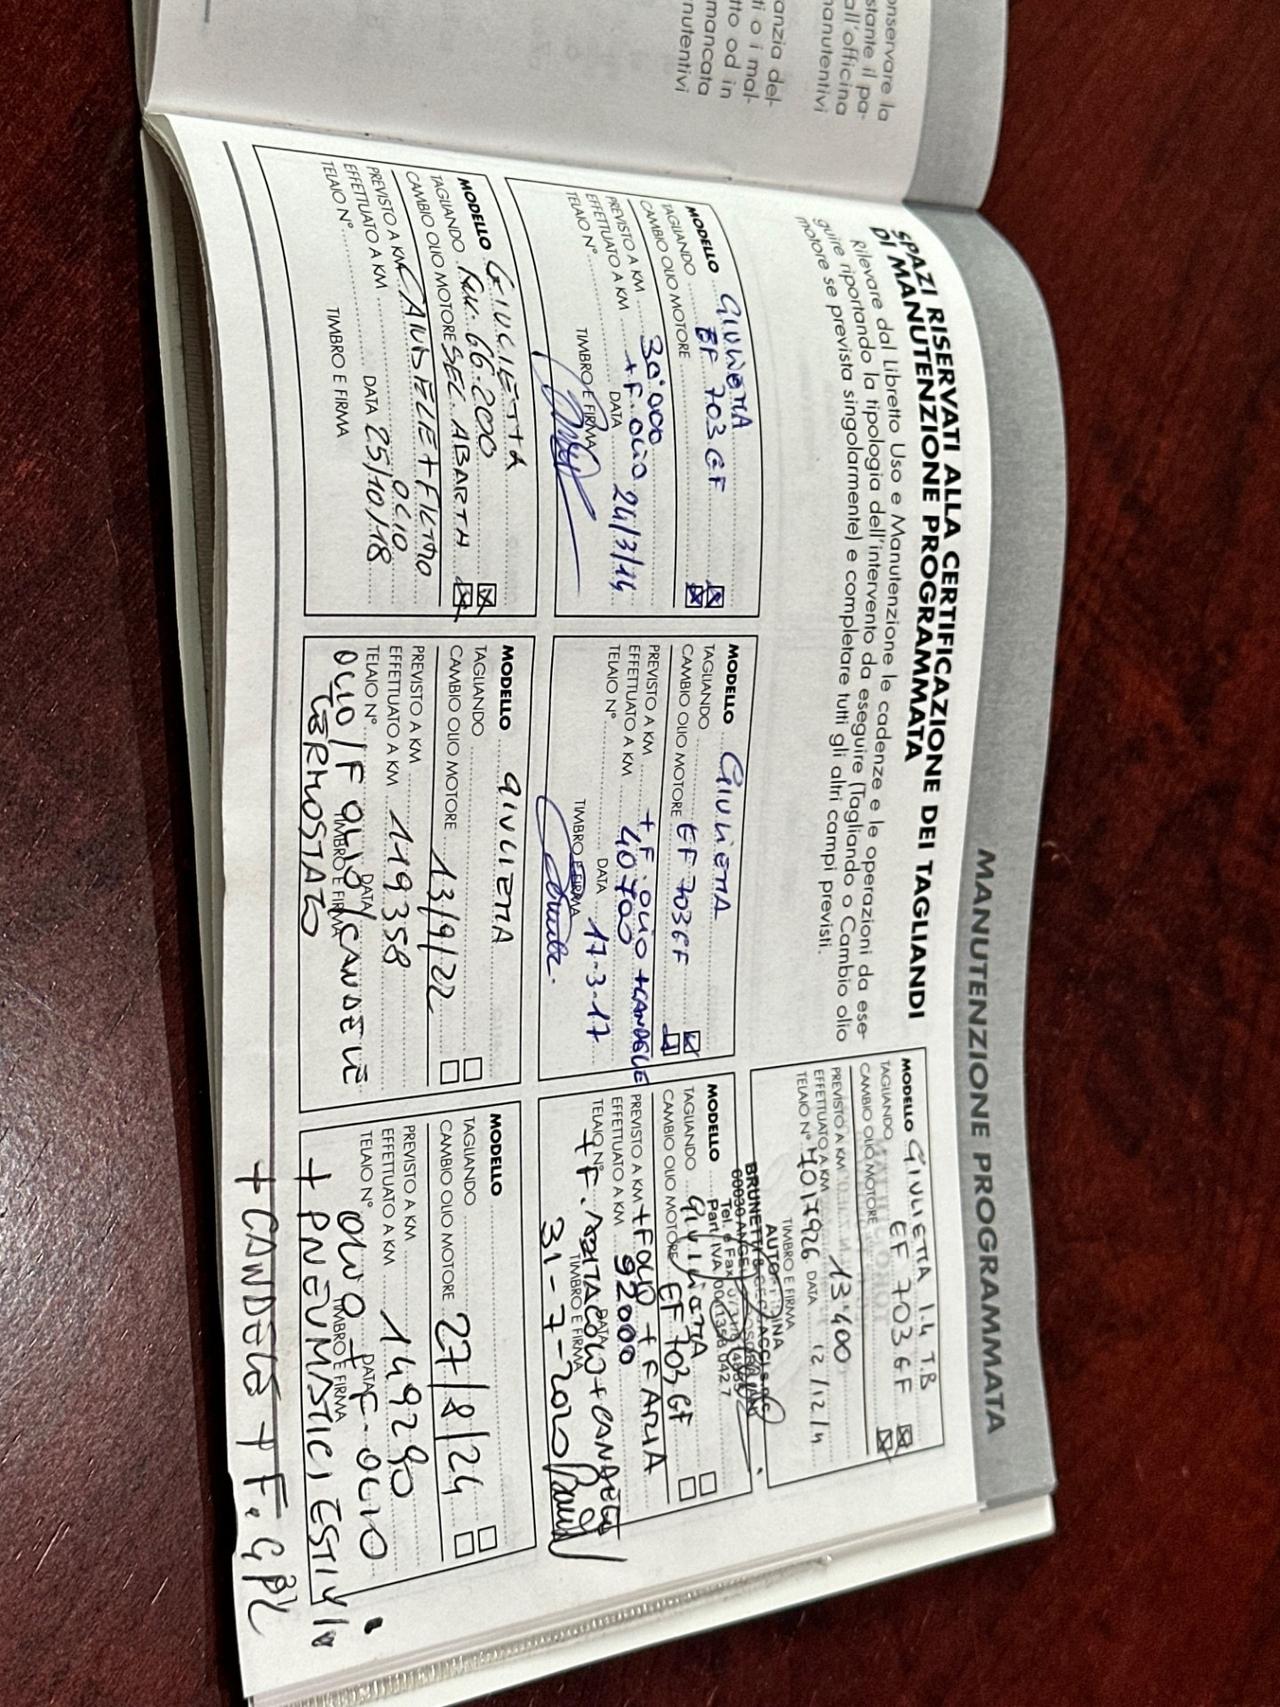 onservare la
stante il pa-
all'officina
manutentivi
anzia del-
ti o i mal-
tto od in
mancata
nutentivi
MANUTENZIONE PROGRAMMATA
SPAZI RISERVATI ALLA CERTIFICAZIONE DEI TAGLIANDI
DI MANUTENZIONE PROGRAMMATA
Rilevare dal Libretto Uso e Manutenzione le cadenze e le operazioni da ese-
guire riportando la tipologia dell'intervento da eseguire (Tagliando o Cambio olio
motore se prevista singolarmente) e completare tutti gli altri campi previsti.
MODELLO GIULIETTA 1.4 TB
TAGLIANDO EF 703 GF
CAMBIO OLIO MOTORE
PREVISTO A KM 13.400
EFFETTUATO A KM
TELAIO N° 7017926 DATA 12/12/11
TIMBRO E FIRMA
BRUNETTI &
60030
Tel. e Fax
Part. IVA
MODELLO GIULIETTA
TAGLIANDO EF 703 GF
CAMBIO OLIO MOTORE
PREVISTO A KM 30.000
EFFETTUATO A KM + F. OLIO
TELAIO N° DATA 24/3/14
TIMBRO E FIRMA
MODELLO GIULIETTA
TAGLIANDO
CAMBIO OLIO MOTORE EF 703 GF
PREVISTO A KM + F. OLIO + CANDELE
EFFETTUATO A KM 40700
TELAIO N° DATA 17-3-17
TIMBRO E FIRMA
MODELLO
TAGLIANDO GIULIETTA
CAMBIO OLIO MOTORE EF 703 GF
PREVISTO A KM + F OLIO + F ARIA
EFFETTUATO A KM 92000
TELAIO N° + F. ABITACOLO + CANDELE
DATA
TIMBRO E FIRMA
31-7-2020
MODELLO GIULIETTA
TAGLIANDO KM. 66.200
CAMBIO OLIO MOTORE SEL. ABARTH
PREVISTO A KM CANDELE + FILTRO
EFFETTUATO A KM OLIO
TELAIO N° DATA 25/10/18
TIMBRO E FIRMA
MODELLO GIULIETTA
TAGLIANDO
CAMBIO OLIO MOTORE 13/9/22
PREVISTO A KM
EFFETTUATO A KM 119358
TELAIO N° DATA
OLIO/F OLIO/CANDELE
TIMBRO E FIRMA
TERMOSTATO
MODELLO
TAGLIANDO
CAMBIO OLIO MOTORE 27/8/24
PREVISTO A KM
EFFETTUATO A KM 149290
TELAIO N° DATA
OLIO + F. OLIO
TIMBRO E FIRMA
+ PNEUMATICI ESTIVI
+ CANDELE + F. GPL